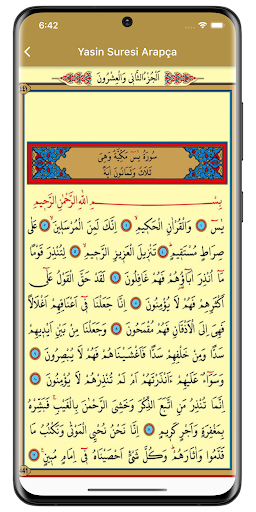 6:42
Yasin Suresi Arapça
اَلْجُزْءُ الثَّانِى وَالْعِشْرُونَ
سُورَةُ يٰسٓ مَكِّيَّةٌ وَهِىَ
ثَلَاثٌ وَثَمَانُونَ اٰيَةً
بِسْــــمِ اللّٰهِ الرَّحْمٰنِ الرَّحِيمِ
يٰسٓ ۝ وَالْقُرْاٰنِ الْحَكِيمِ ۝ اِنَّكَ لَمِنَ الْمُرْسَلِينَ ۝ عَلٰى
صِرَاطٍ مُسْتَقِيمٍ ۝ تَنْزِيلَ الْعَزِيزِ الرَّحِيمِ ۝ لِتُنْذِرَ قَوْمًا
مَٓا اُنْذِرَ اٰبَٓاؤُ۬هُمْ فَهُمْ غَافِلُونَ ۝ لَقَدْ حَقَّ الْقَوْلُ عَلٰٓى
اَكْثَرِهِمْ فَهُمْ لَا يُؤْمِنُونَ ۝ اِنَّا جَعَلْنَا فِٓى اَعْنَاقِهِمْ اَغْلَالًا
فَهِىَ اِلَى الْاَذْقَانِ فَهُمْ مُقْمَحُونَ ۝ وَجَعَلْنَا مِنْ بَيْنِ اَيْدِيهِمْ
سَدًّا وَمِنْ خَلْفِهِمْ سَدًّا فَاَغْشَيْنَاهُمْ فَهُمْ لَا يُبْصِرُونَ ۝
وَسَوَٓاءٌ عَلَيْهِمْ ءَاَنْذَرْتَهُمْ اَمْ لَمْ تُنْذِرْهُمْ لَا يُؤْمِنُونَ ۝
اِنَّمَا تُنْذِرُ مَنِ اتَّبَعَ الذِّكْرَ وَخَشِىَ الرَّحْمٰنَ بِالْغَيْبِ فَبَشِّرْهُ
بِمَغْفِرَةٍ وَاَجْرٍ كَرِيمٍ ۝ اِنَّا نَحْنُ نُحْيِى الْمَوْتٰى وَنَكْتُبُ مَا
قَدَّمُوا وَاٰثَارَهُمْ وَكُلَّ شَىْءٍ اَحْصَيْنَاهُ فِٓى اِمَامٍ مُبِينٍ ۝